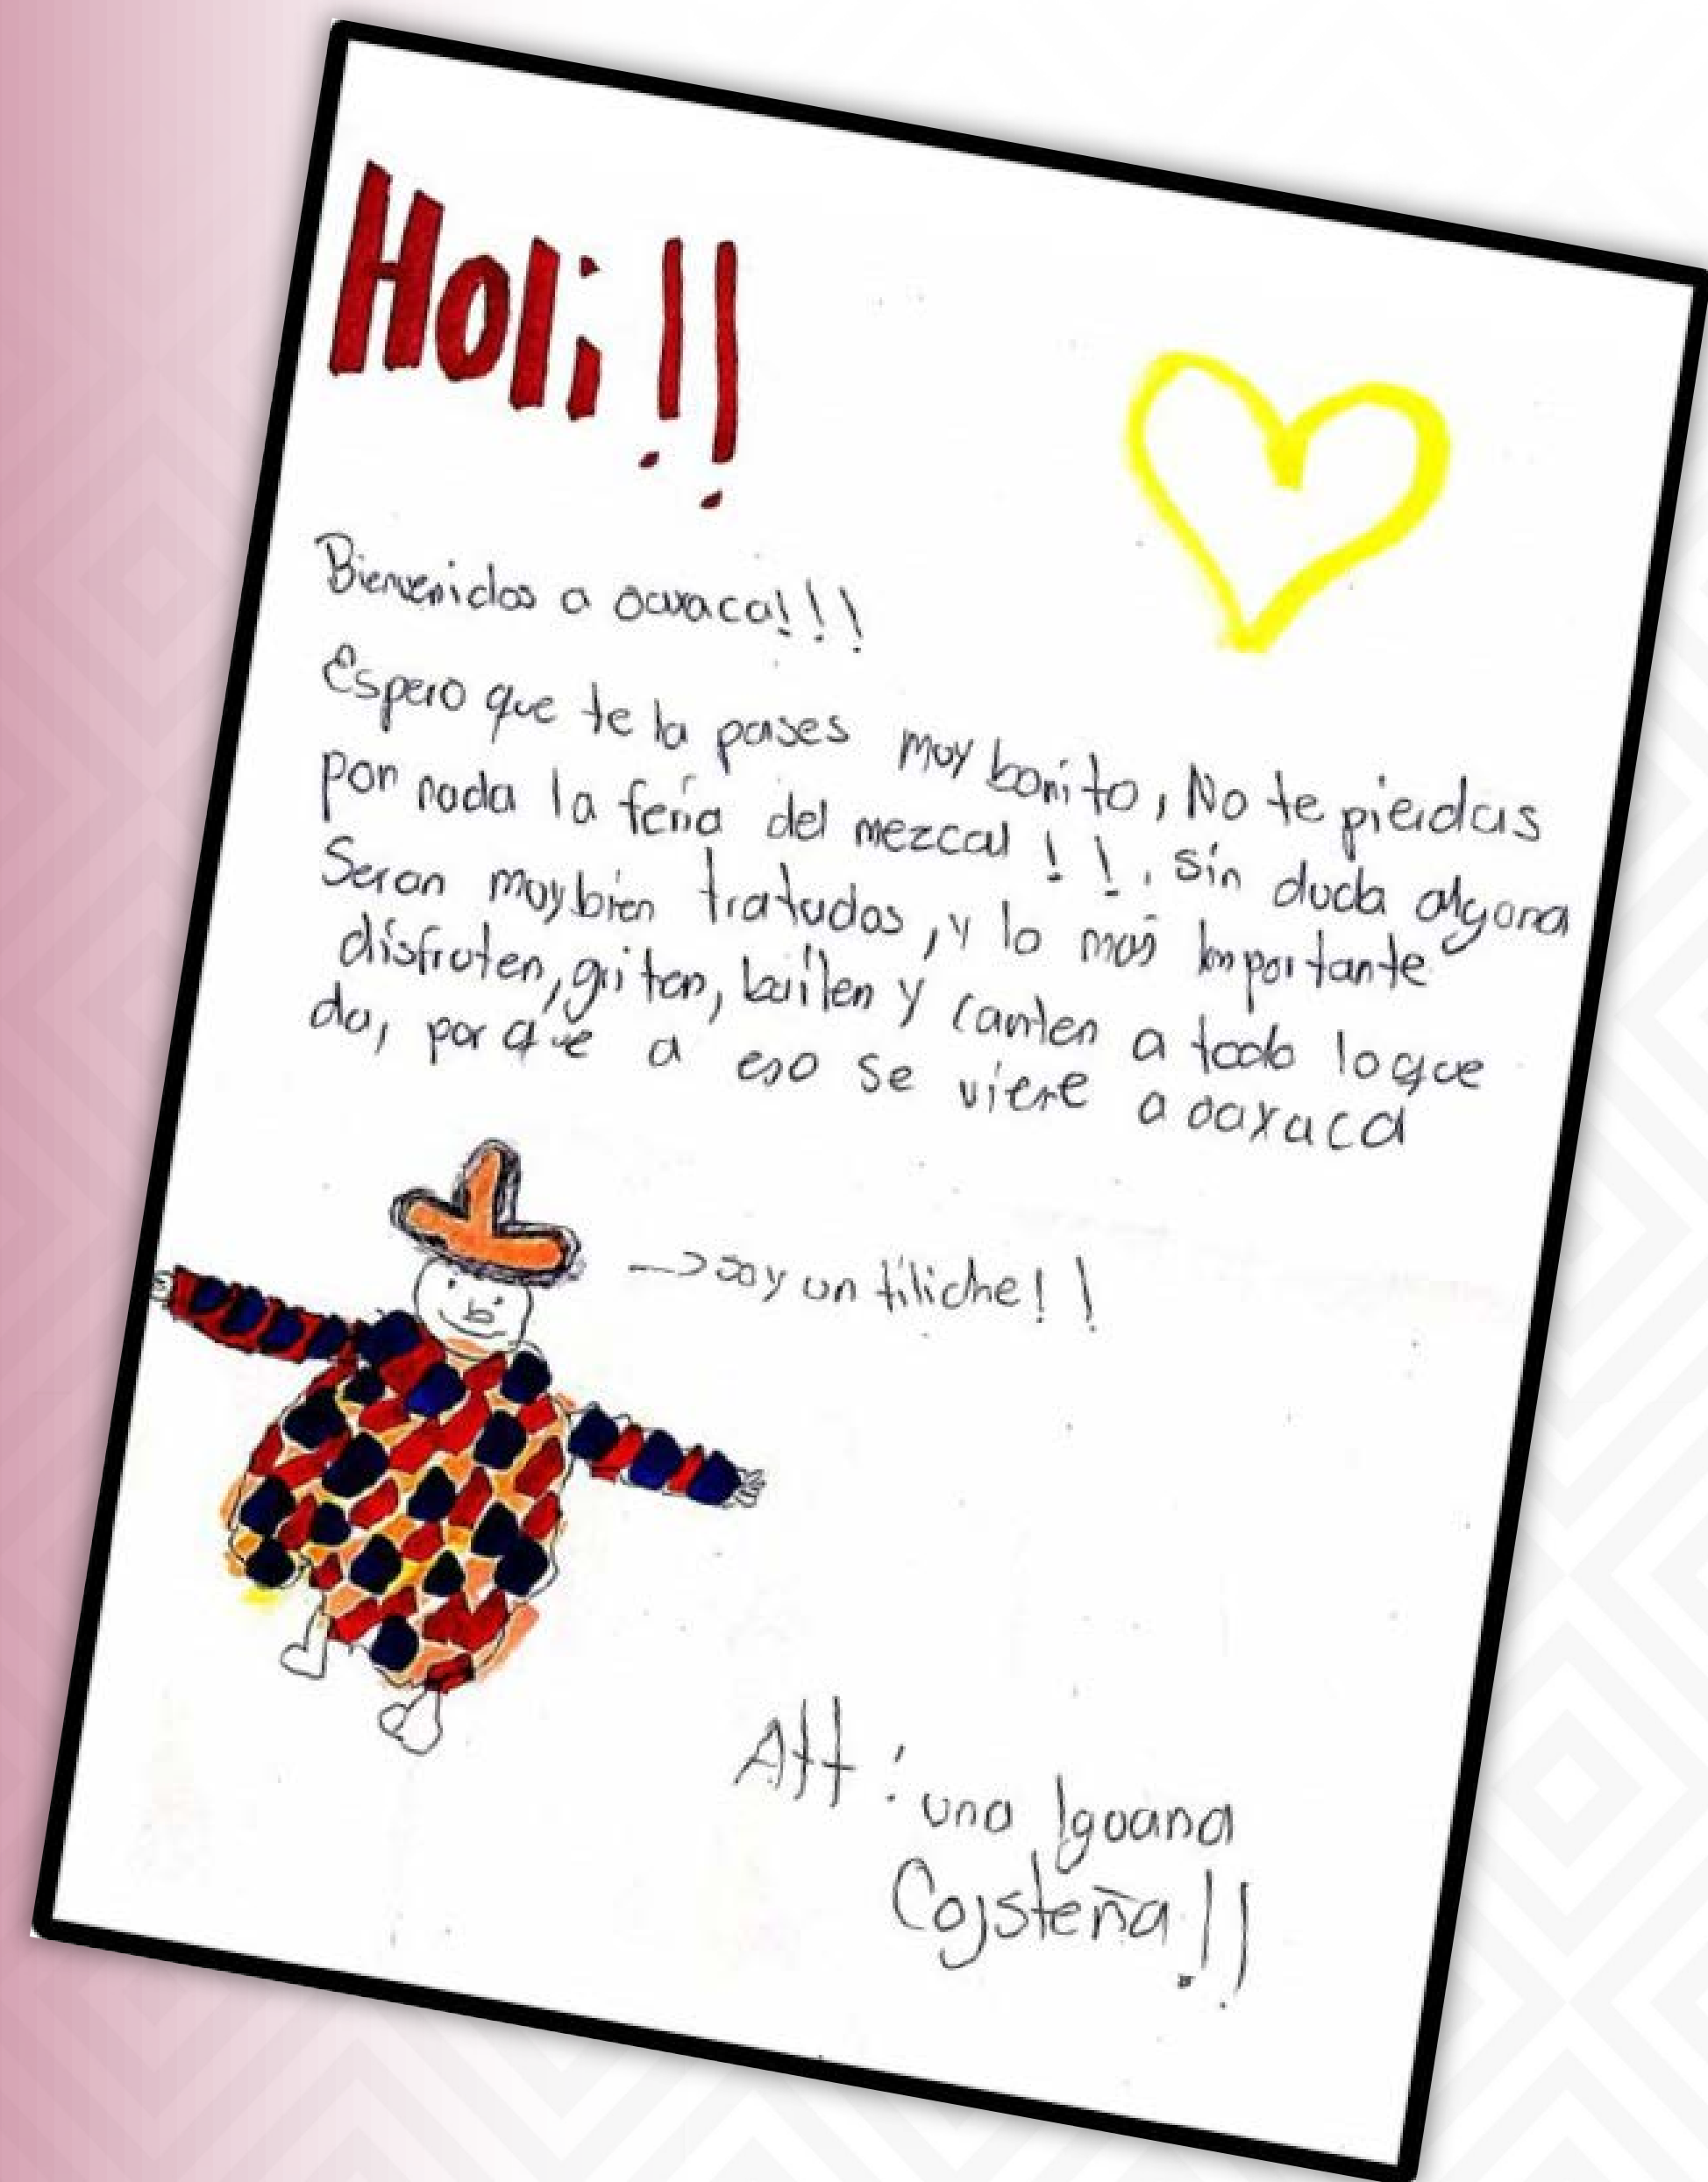 Holi!!
Bienvenidos a oaxaca!!!
Espero que te la pases muy bonito, No te pierdas
por nada la feria del mezcal!!, sin duda alguna
Seran muy bien tratados, y lo mas importante
disfruten, griten, bailen y canten a todo lo que
da, por que a eso se viene a oaxaca
-->soy un tiliche!!
Att: una Iguana
Costeña!!